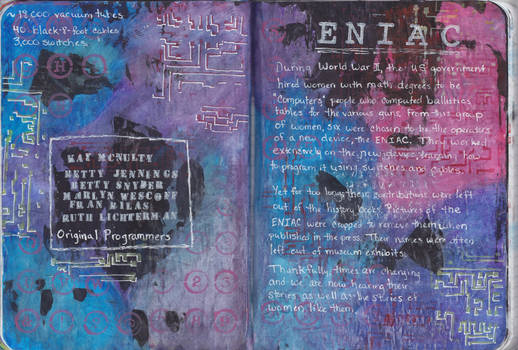 ~ 18,000 vacuum tubes
40 black 8-foot cables
3,000 switches
KAY MCNULTY
BETTY JENNINGS
BETTY SNYDER
MARLYN WESCOFF
FRAN BILAS
RUTH LICHTERMAN
Original Programmers
ENIAC
During World War II, the US government
hired women with math degrees to be
"Computers" people who computed ballistics
tables for the various guns. From this group
of women, six were chosen to be the operators
of a new device, the ENIAC. They worked
extensively on the new device, learning how
to program it using switches and cables.
Yet for too long these contributions were left
out of the history books. Pictures of the
ENIAC were cropped to remove them when
published in the press. Their names were often
left out of museum exhibits.
Thankfully times are changing
and we are now hearing their
stories as well as the stories of
women like them.